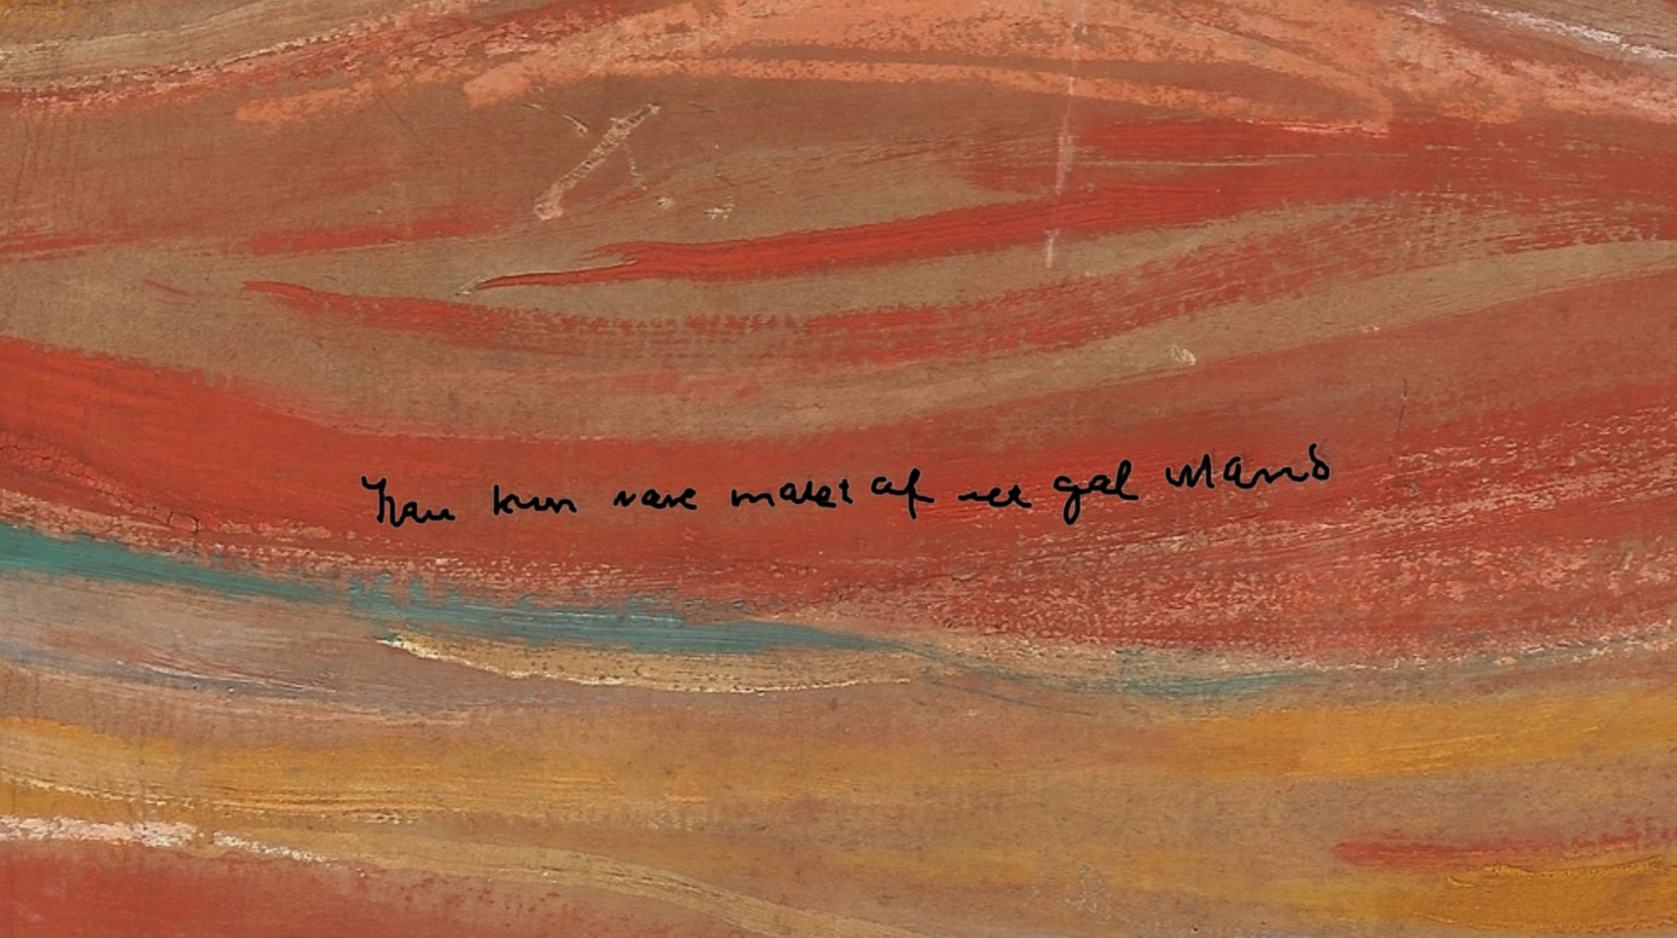 Kan kun være malet af en gal Mand